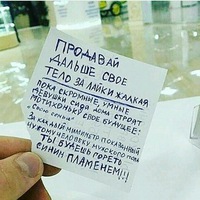 ПРОДАВАЙ
ДАЛЬШЕ СВОЕ
ТЕЛО ЗА ЛАЙКИ ЖАЛКАЯ
ПОКА СКРОМНИЕ, УМНЫЕ
ДЕВУШКИ СИДЯ ДОМА СТРОЯТ
МОТИХОНЬКУ СВОЕ БУДУЩЕЕ
ЗА КАЖДЫЙ МИЛИМЕТР ПОКАЗАННЫЙ
ЧУЖОМУ ЧЕЛОВЕКУ МУЖСКОГО ПОЛА
ТЫ БУДЕШЬ ГОРЕТЬ
СИНИМ ПЛАМЕНЕМ!!!